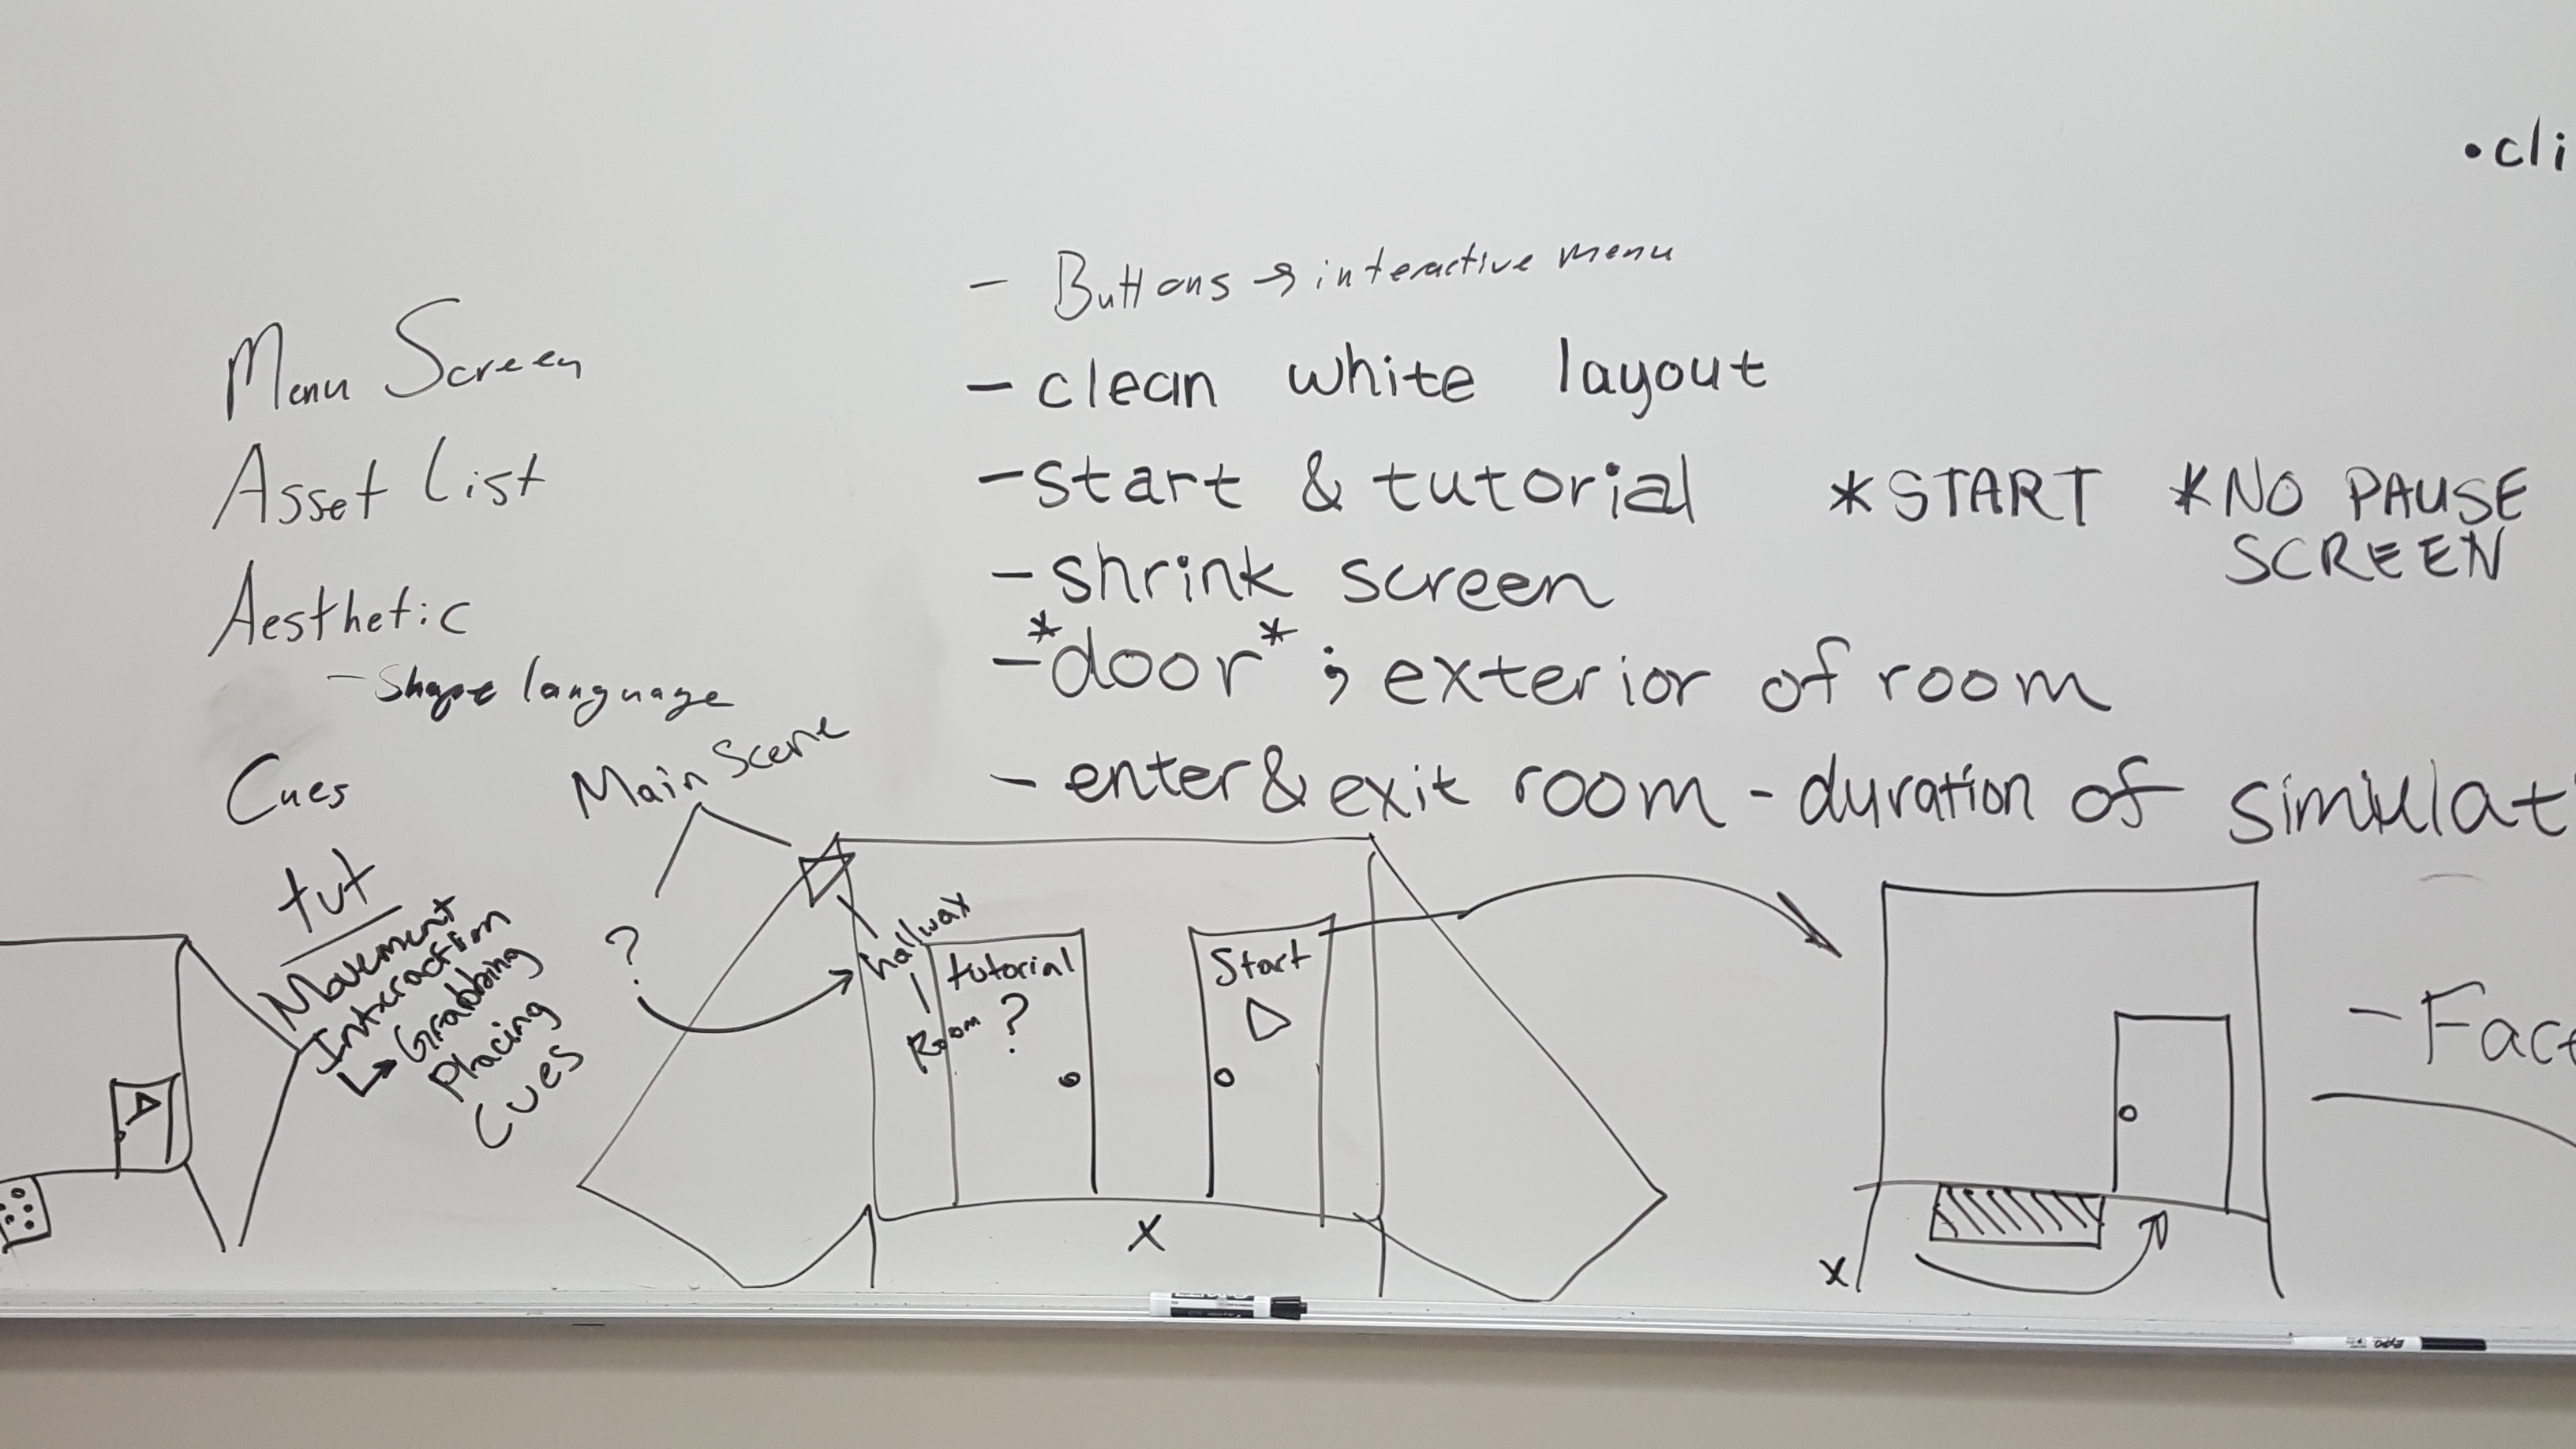 Menu Screen
Asset List
Aesthetic
- Shape language
Cues
- Buttons → interactive menu
- clean white layout
- start & tutorial *START *NO PAUSE
SCREEN
- shrink screen
- *door* ; exterior of room
- enter & exit room - duration of simulat
• cli
tut
Movement
Interaction
↳ Grabbing
Placing
Cues
Main Scene
?
hallway
Room
tutorial
?
Start
X
X
- Fac